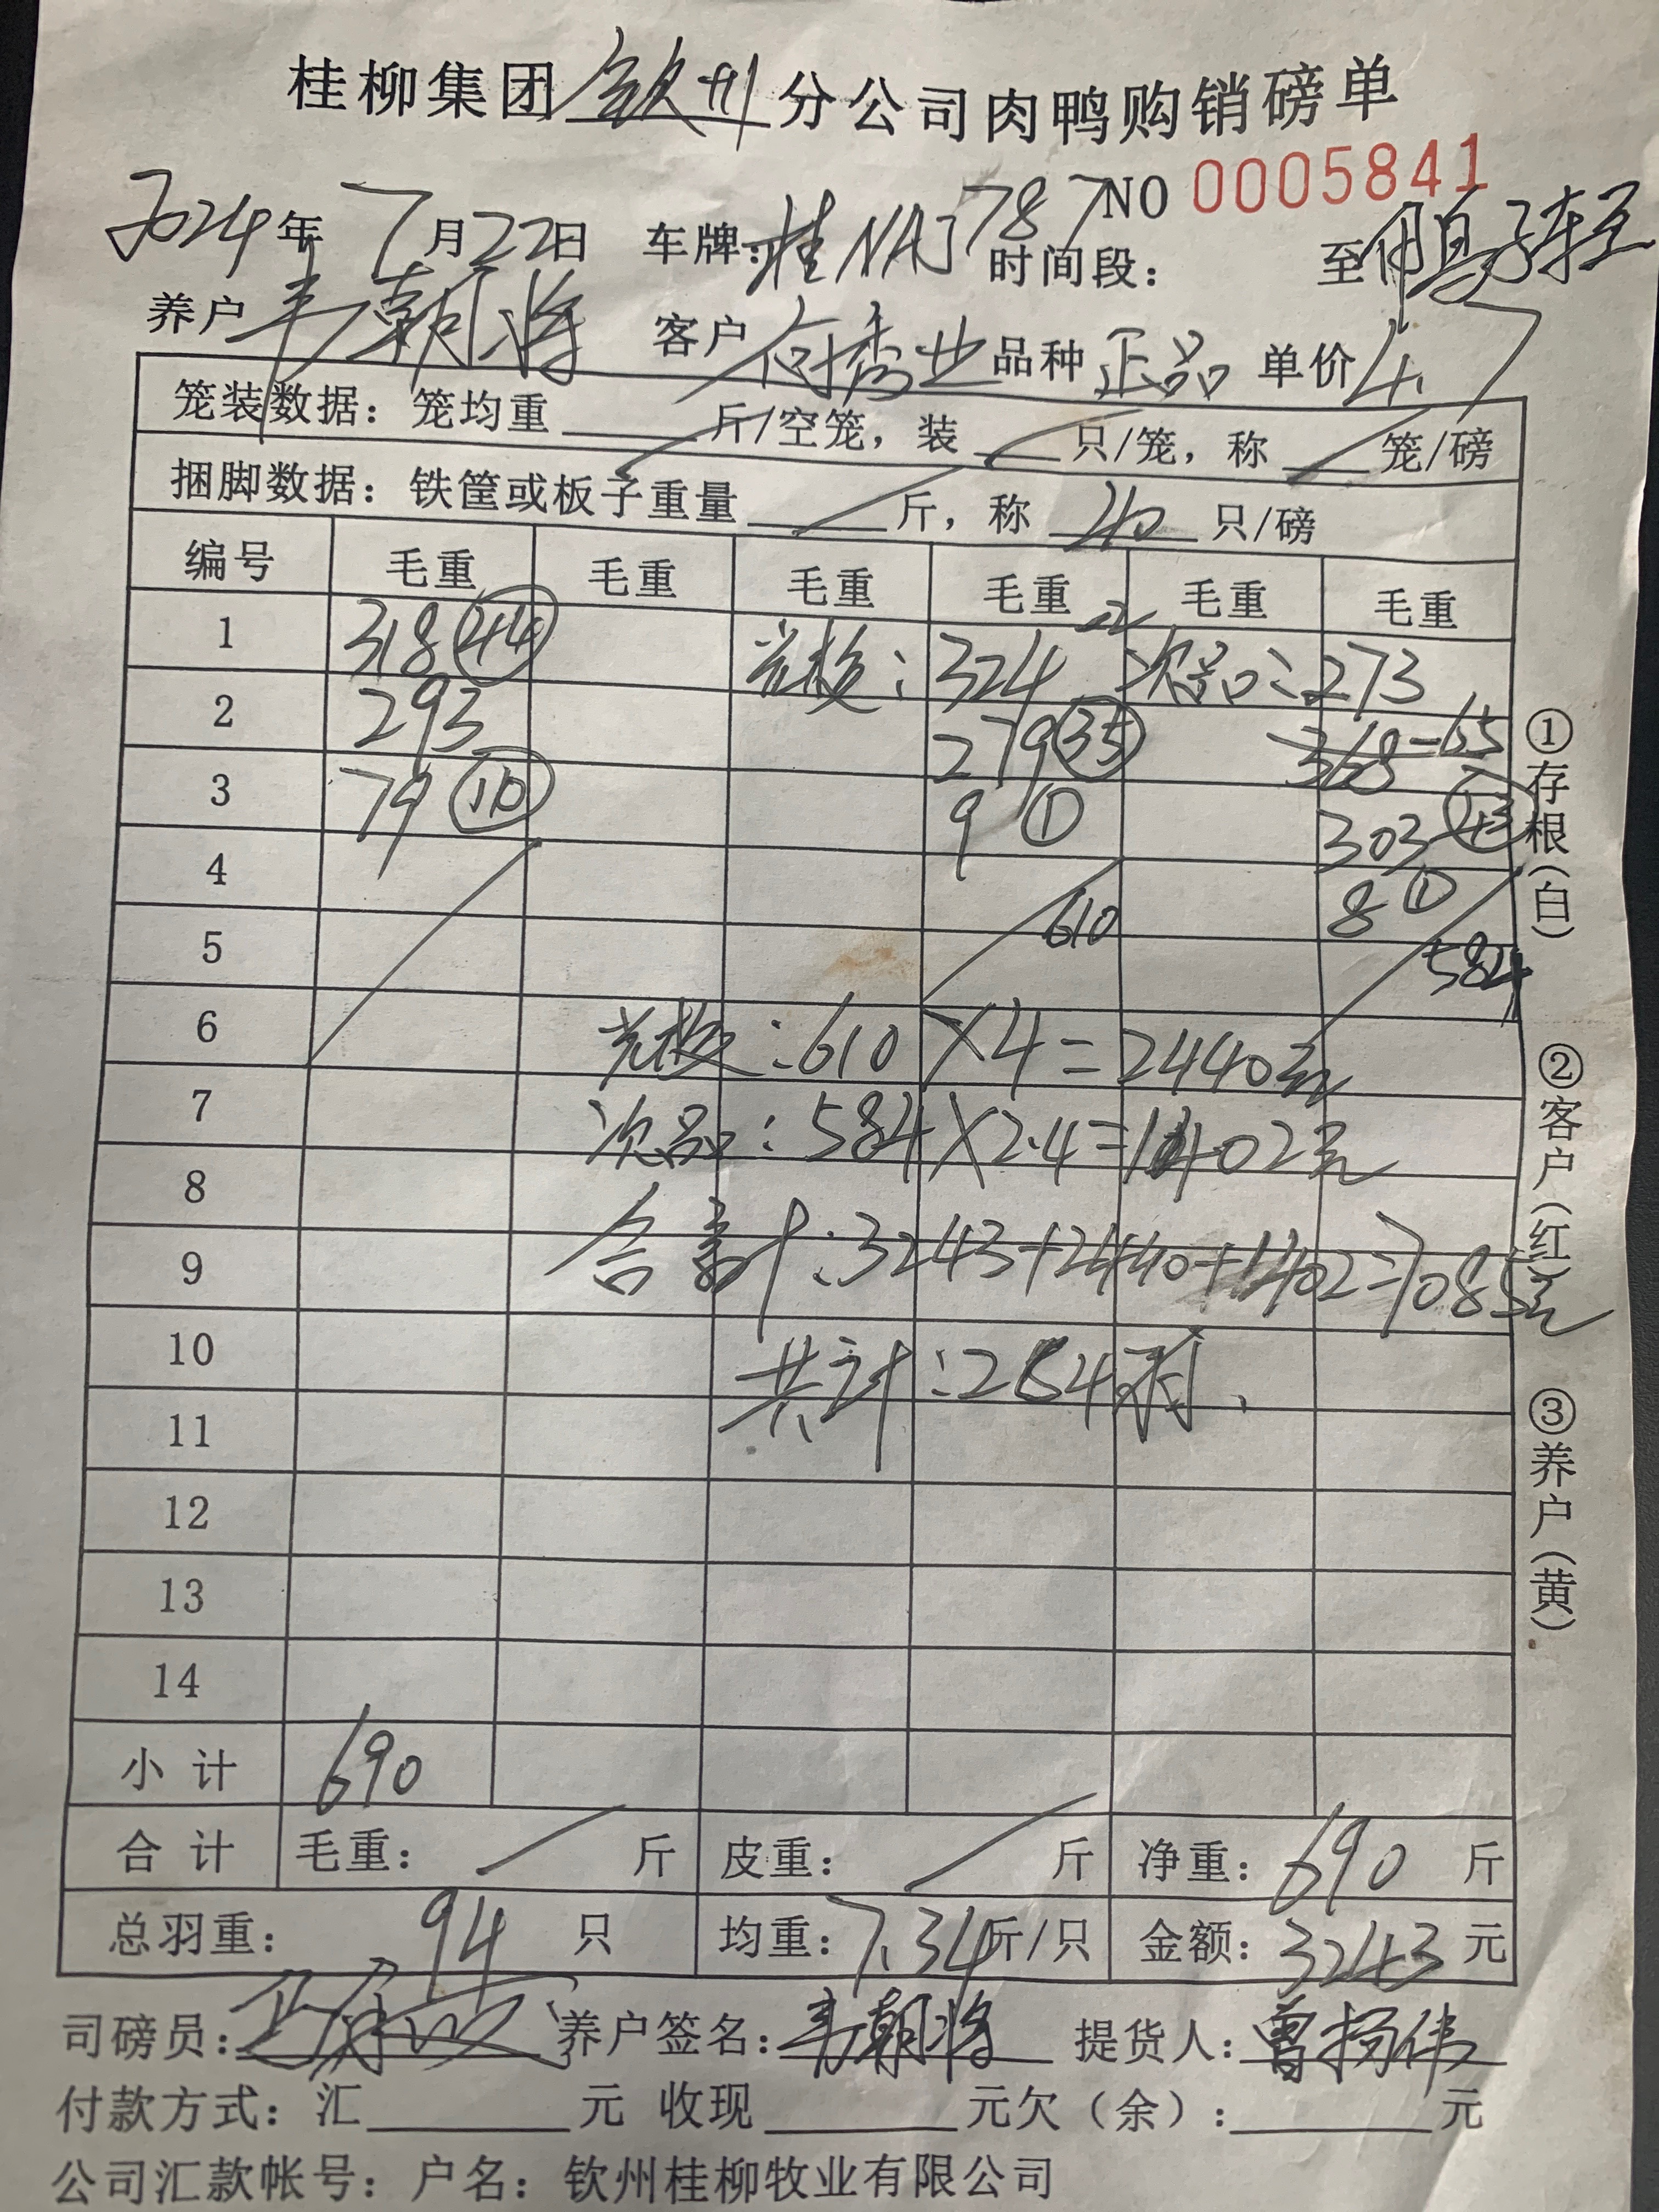 桂柳集团钦州分公司肉鸭购销磅单
NO 0005841
2024年7月22日 车牌:桂NAJ787 时间段: 至 鸭子轻
养户 韦朝将 客户 何秀业 品种 正品 单价 4.7
笼装数据: 笼均重 斤/空笼, 装 只/笼, 称 笼/磅
捆脚数据: 铁筐或板子重量 斤, 称 40 只/磅
编号 毛重 毛重 毛重 毛重 毛重 毛重
1 318 44 324 次品: 273
2 293 279 35 368-65
3 79 10 9 1 303
4 8 1
5 610 584
6 :610×4=2440元
7 次品:584×2.4=1402元
8
9 合计:3243+2440+1402=7085元
10 共计:254羽
11
12
13
14
小计 690
合计 毛重: 斤 皮重: 斤 净重: 690 斤
总羽重: 94 只 均重: 7.34斤/只 金额: 3243元
司磅员: 养户签名: 韦朝将 提货人: 曾扬伟
付款方式: 汇 元 收现 元欠(余): 元
公司汇款帐号: 户名: 钦州桂柳牧业有限公司
①存根(白)
②客户(红)
③养户(黄)